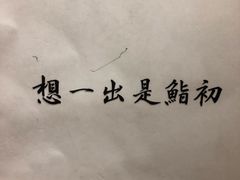 想一出是鮨初